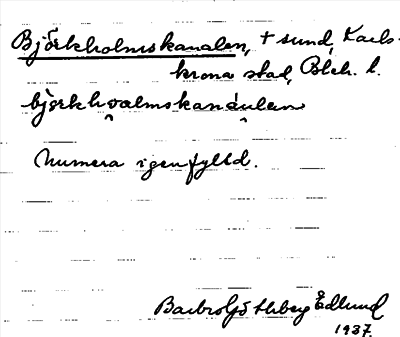 Björkholmskanalen, † sund, Karls-
krona stad, Blek. l.
björkhoalmskanàulen
Numera igenfylld.
Barbro Götlberg Edlund
1937.